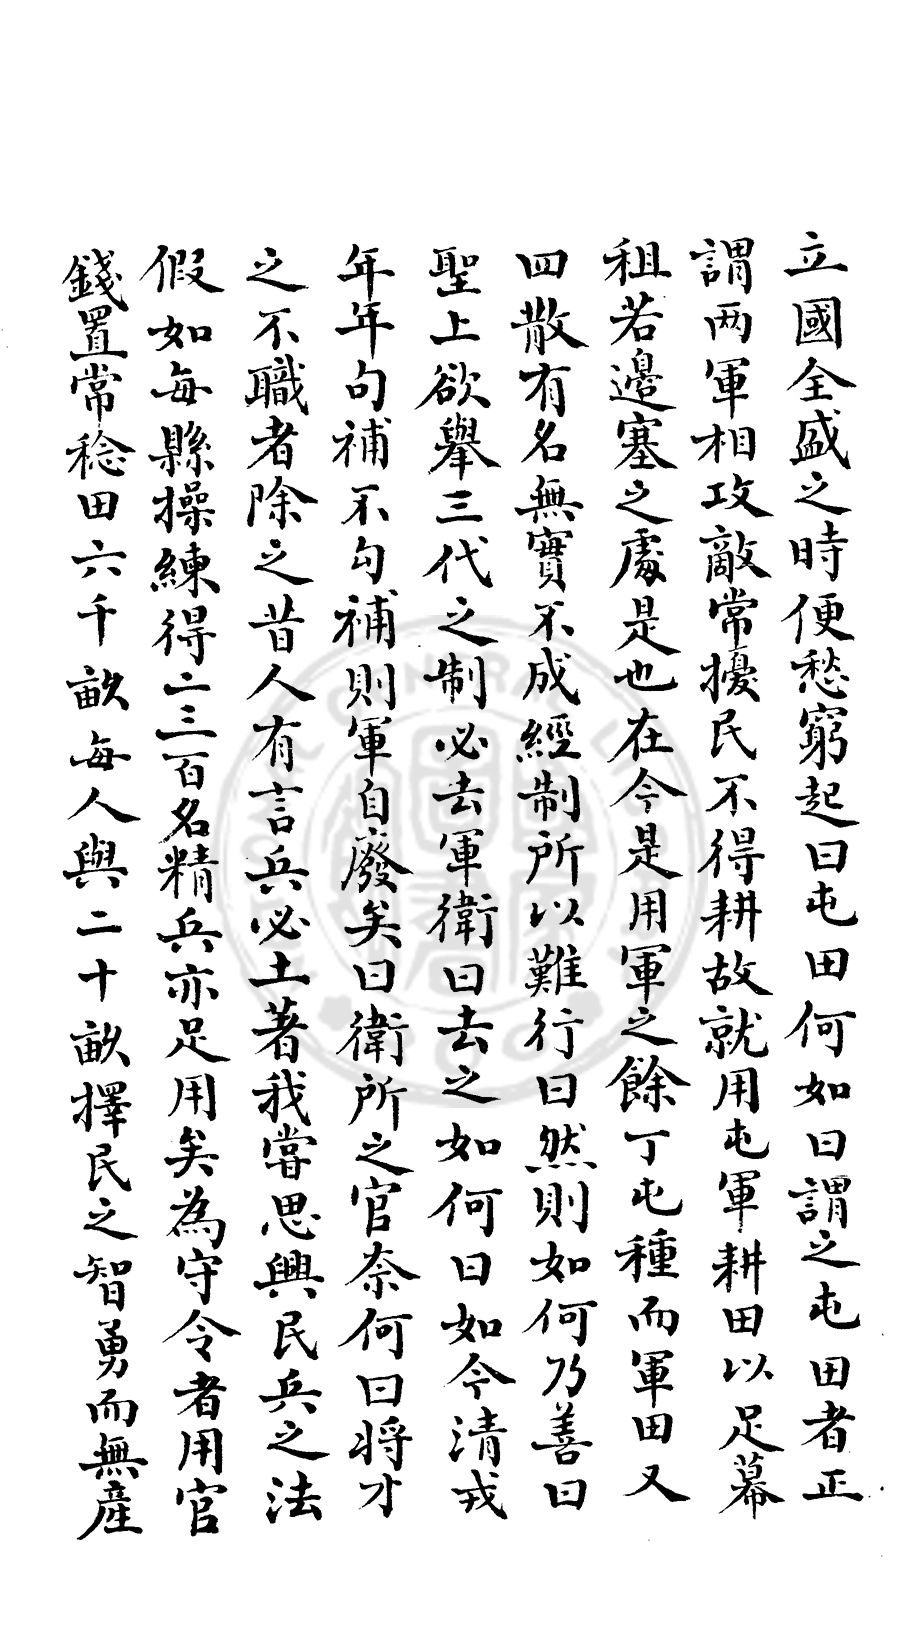 立國全盛之時便愁窮起曰屯田何如曰謂之屯田者正
謂两軍相攻敵常擾民不得耕故就用屯軍耕田以足幕
租若邊塞之處是也在今是用軍之餘丁屯種而軍田又
四散有名無實不成經制所以難行曰然則如何乃善曰
聖上欲舉三代之制必去軍衛曰去之如何曰如今清戎
年年句補不勾補則軍自廢矣曰衛所之官奈何曰將才
之不職者除之昔人有言兵必土著我嘗思興民兵之法
假如每縣操練得二三百名精兵亦足用矣為守令者用官
錢置常稔田六千畝每人與二十畝擇民之智勇而無產